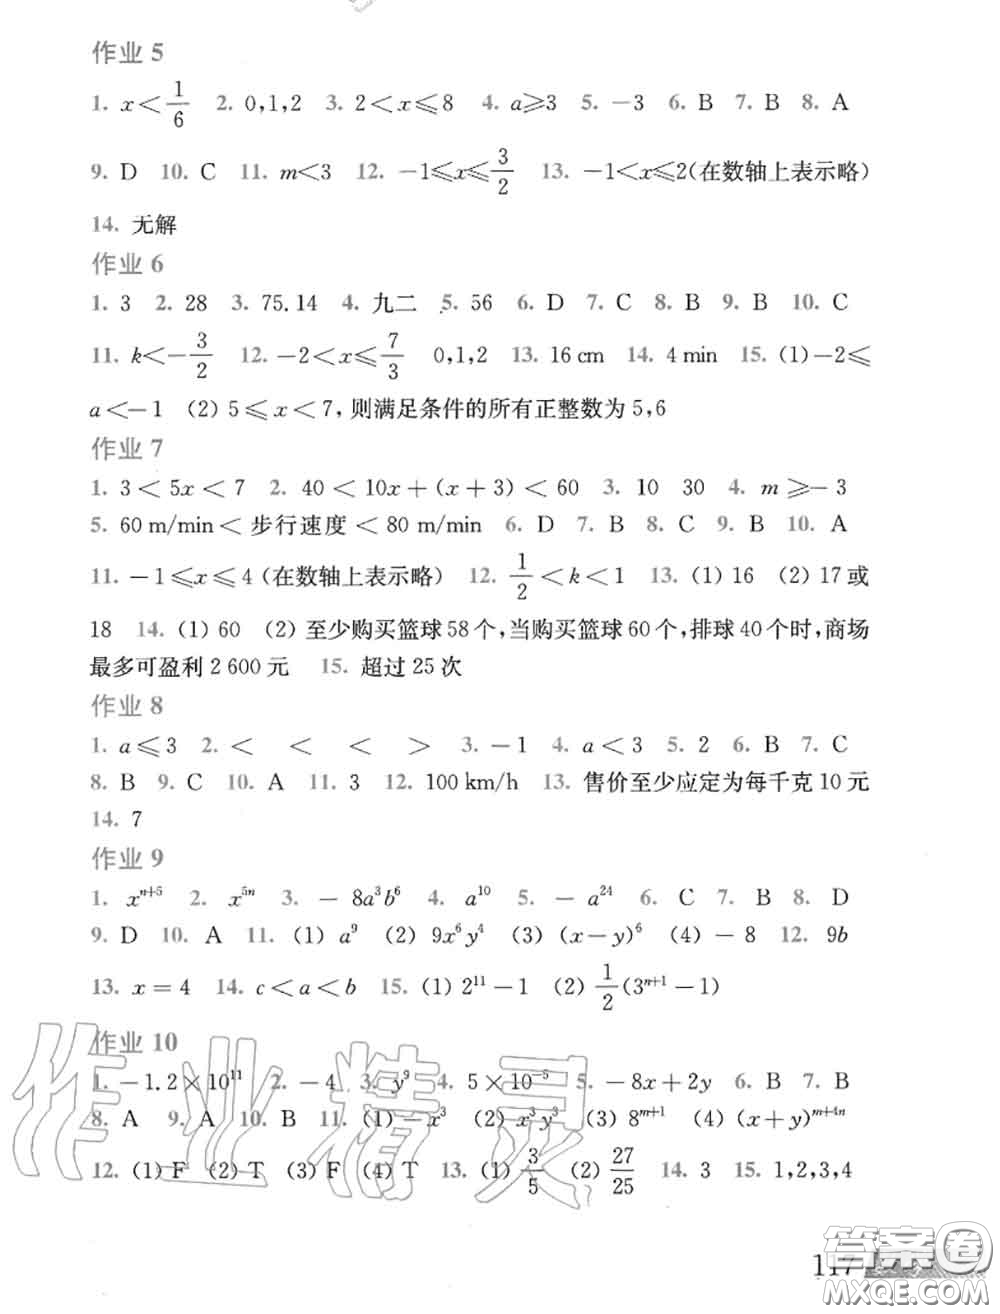 作业 5
1. x<1/6 2. 0,1,2 3. 2<x⩽8 4. a⩾3 5. －3 6. B 7. B 8. A
9. D 10. C 11. m<3 12. －1⩽x⩽3/2 13. －1<x⩽2(在数轴上表示略)
14. 无解
作业 6
1. 3 2. 28 3. 75.14 4. 九二 5. 56 6. D 7. C 8. B 9. B 10. C
11. k<－3/2 12. －2<x⩽7/3 0,1,2 13. 16 cm 14. 4 min 15. (1)－2⩽
a<－1 (2) 5⩽x<7, 则满足条件的所有正整数为 5,6
作业 7
1. 3<5x<7 2. 40<10x+(x+3)<60 3. 10 30 4. m⩾－3
5. 60 m/min<步行速度<80 m/min 6. D 7. B 8. C 9. B 10. A
11. －1⩽x⩽4(在数轴上表示略) 12. 1/2<k<1 13. (1) 16 (2) 17或
18 14. (1) 60 (2) 至少购买篮球58个,当购买篮球60个,排球40个时,商场
最多可盈利2 600元 15. 超过25次
作业 8
1. a⩽3 2. < < < > 3. －1 4. a<3 5. 2 6. B 7. C
8. B 9. C 10. A 11. 3 12. 100 km/h 13. 售价至少应定为每千克10元
14. 7
作业 9
1. x^{n+5} 2. x^{5n} 3. －8a^3b^6 4. a^{10} 5. －a^{24} 6. C 7. B 8. D
9. D 10. A 11. (1) a^9 (2) 9x^6y^4 (3) (x－y)^6 (4) －8 12. 9b
13. x=4 14. c<a<b 15. (1) 2^{11}－1 (2) 1/2(3^{n+1}－1)
作业 10
1. －1.2×10^{11} 2. －4 3. y^9 4. 5×10^{-5} 5. －8x+2y 6. B 7. B
8. A 9. A 10. B 11. (1)－x^3 (2) x^3y^3 (3) 8^{m+1} (4) (x+y)^{m+4n}
12. (1) F (2) T (3) F (4) T 13. (1) 3/5 (2) 27/25 14. 3 15. 1,2,3,4
作业精灵
117
答案圈
MXQE.COM